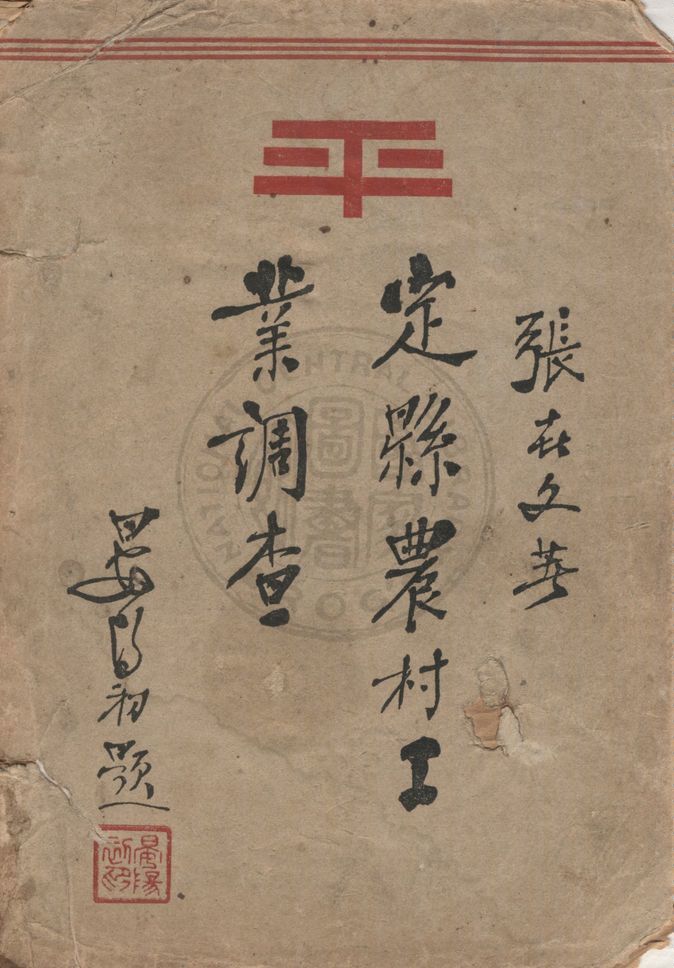 平
張世文著
定縣農村工
業調查
晏陽初題
晏陽初印